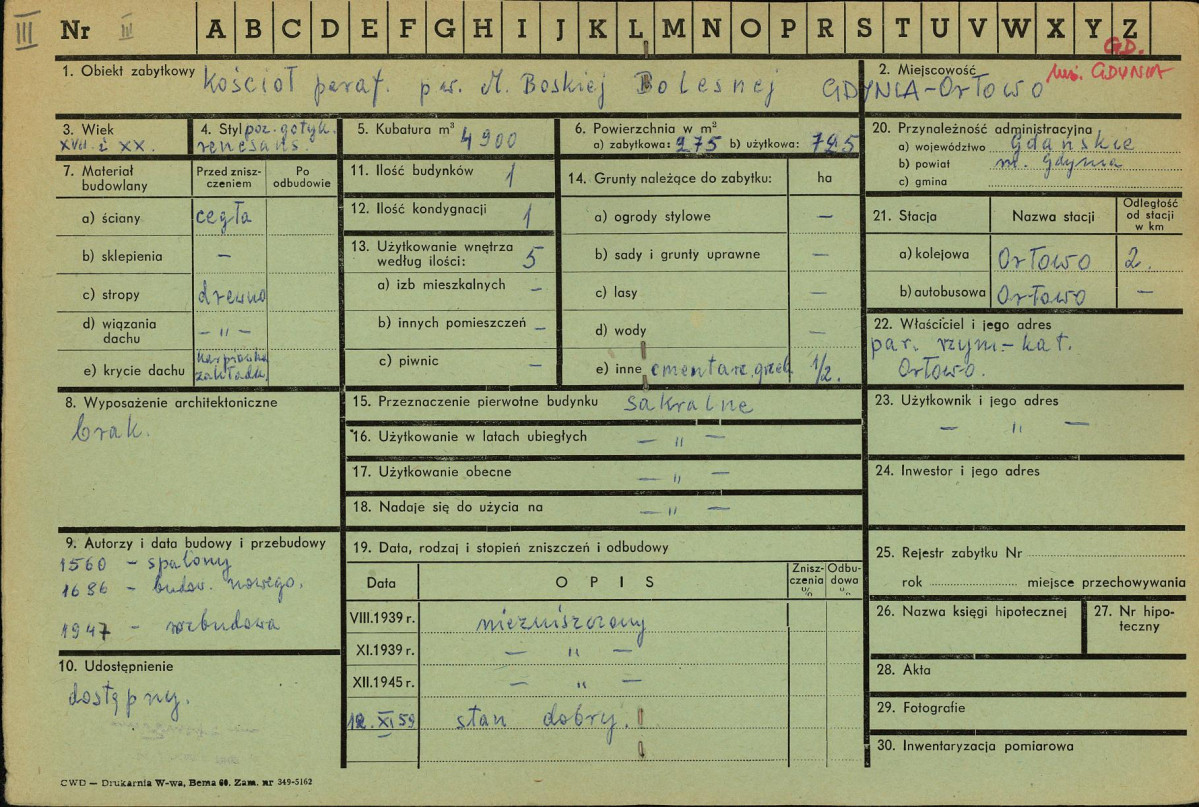 III
Nr III
A B C D E F G H I J K L M N O P R S T U V W X Y Z
GD.
1. Obiekt zabytkowy Kościoł paraf. pw. M. Boskiej Bolesnej
2. Miejscowość m. GDYNIA
GDYNIA-Orłowo
3. Wiek
XVII i XX.
4. Styl poz. gotyk.
renesans.
5. Kubatura m³ 4900
6. Powierzchnia w m²
a) zabytkowa: 275 b) użytkowa: 725
20. Przynależność administracyjna
a) województwo Gdańskie
b) powiat m. Gdynia
c) gmina
7. Materiał budowlany
Przed zniszczeniem
Po odbudowie
a) ściany cegła
b) sklepienia —
c) stropy drewno
d) wiązania dachu — „ —
e) krycie dachu karpiówka zakładk.
8. Wyposażenie architektoniczne
brak.
9. Autorzy i data budowy i przebudowy
1560 – spalony
1686 – budow. nowego.
1947 – rozbudowa
10. Udostępnienie
dostępny.
11. Ilość budynków 1
12. Ilość kondygnacji 1
13. Użytkowanie wnętrza
według ilości: 5
a) izb mieszkalnych —
b) innych pomieszczeń —
c) piwnic —
14. Grunty należące do zabytku: ha
a) ogrody stylowe —
b) sady i grunty uprawne —
c) lasy —
d) wody —
e) inne cmentarz grzeb. 1/2.
15. Przeznaczenie pierwotne budynku sakralne
16. Użytkowanie w latach ubiegłych — „ —
17. Użytkowanie obecne — „ —
18. Nadaje się do użycia na — „ —
19. Data, rodzaj i stopień zniszczeń i odbudowy
Data
OPIS
Zniszczenia %
Odbudowa %
VIII.1939 r. niezniszczony
XI.1939 r. — „ —
XII.1945 r. — „ —
12. XI 59 stan dobry.
21. Stacja
Nazwa stacji
Odległość od stacji w km
a) kolejowa Orłowo 2.
b) autobusowa Orłowo —
22. Właściciel i jego adres
par. rzym-kat.
Orłowo.
23. Użytkownik i jego adres
— „ —
24. Inwestor i jego adres
25. Rejestr zabytku Nr
rok miejsce przechowywania
26. Nazwa księgi hipotecznej
27. Nr hipoteczny
28. Akta
29. Fotografie
30. Inwentaryzacja pomiarowa
CWD — Drukarnia W-wa, Bema 60. Zam. nr 349-5162